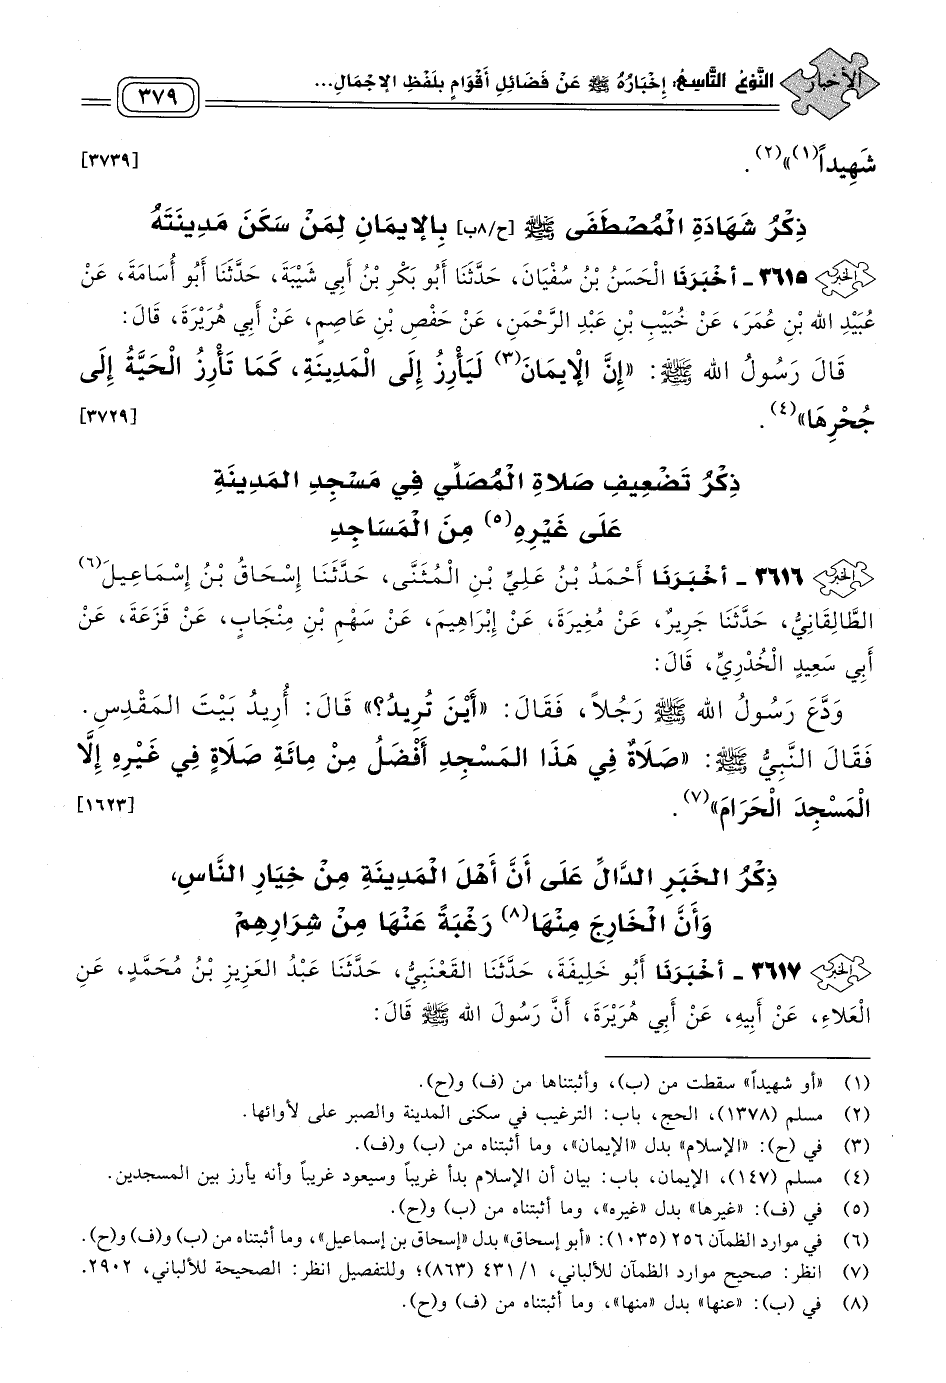 الأخبار النَّوْعُ التَّاسِعُ: إِخْبَارُهُ ﷺ عَنْ فَضَائِلِ أَقْوَامٍ بِلَفْظِ الإِجْمَالِ... ٣٧٩
شَهِيداً(١)»(٢). [٣٧٣٩]
ذِكْرُ شَهَادَةِ الْمُصْطَفَى ﷺ [ح/٨ب] بِالإِيمَانِ لِمَنْ سَكَنَ مَدِينَتَهُ
الخبر ٣٦١٥ ـ أَخْبَرَنَا الْحَسَنُ بْنُ سُفْيَانَ، حَدَّثَنَا أَبُو بَكْرِ بْنُ أَبِي شَيْبَةَ، حَدَّثَنَا أَبُو أُسَامَةَ، عَنْ
عُبَيْدِ الله بْنِ عُمَرَ، عَنْ خُبَيْبِ بْنِ عَبْدِ الرَّحْمَنِ، عَنْ حَفْصِ بْنِ عَاصِمٍ، عَنْ أَبِي هُرَيْرَةَ، قَالَ:
قَالَ رَسُولُ الله ﷺ: «إِنَّ الْإِيمَانَ(٣) لَيَأْرِزُ إِلَى الْمَدِينَةِ، كَمَا تَأْرِزُ الْحَيَّةُ إِلَى
جُحْرِهَا»(٤). [٣٧٢٩]
ذِكْرُ تَضْعِيفِ صَلاةِ الْمُصَلِّي فِي مَسْجِدِ المَدِينَةِ
عَلَى غَيْرِهِ(٥) مِنَ الْمَسَاجِدِ
الخبر ٣٦١٦ ـ أَخْبَرَنَا أَحْمَدُ بْنُ عَلِيِّ بْنِ الْمُثَنَّى، حَدَّثَنَا إِسْحَاقُ بْنُ إِسْمَاعِيلَ(٦)
الطَّالِقَانِيُّ، حَدَّثَنَا جَرِيرٌ، عَنْ مُغِيرَةَ، عَنْ إِبْرَاهِيمَ، عَنْ سَهْمِ بْنِ مِنْجَابٍ، عَنْ قَزَعَةَ، عَنْ
أَبِي سَعِيدٍ الْخُدْرِيِّ، قَالَ:
وَدَّعَ رَسُولُ الله ﷺ رَجُلاً، فَقَالَ: «أَيْنَ تُرِيدُ؟» قَالَ: أُرِيدُ بَيْتَ المَقْدِسِ.
فَقَالَ النَّبِيُّ ﷺ: «صَلَاةٌ فِي هَذَا المَسْجِدِ أَفْضَلُ مِنْ مِائَةِ صَلَاةٍ فِي غَيْرِهِ إِلَّا
الْمَسْجِدَ الْحَرَامَ»(٧). [١٦٢٣]
ذِكْرُ الخَبَرِ الدَّالِّ عَلَى أَنَّ أَهْلَ الْمَدِينَةِ مِنْ خِيَارِ النَّاسِ،
وَأَنَّ الْخَارِجَ مِنْهَا(٨) رَغْبَةً عَنْهَا مِنْ شِرَارِهِمْ
الخبر ٣٦١٧ ـ أَخْبَرَنَا أَبُو خَلِيفَةَ، حَدَّثَنَا القَعْنَبِيُّ، حَدَّثَنَا عَبْدُ العَزِيزِ بْنُ مُحَمَّدٍ، عَنِ
الْعَلَاءِ، عَنْ أَبِيهِ، عَنْ أَبِي هُرَيْرَةَ، أَنَّ رَسُولَ الله ﷺ قَالَ:
(١) «أو شهيداً» سقطت من (ب)، وأثبتناها من (ف) و(ح).
(٢) مسلم (١٣٧٨)، الحج، باب: الترغيب في سكنى المدينة والصبر على لأوائها.
(٣) في (ح): «الإسلام» بدل «الإيمان»، وما أثبتناه من (ب) و(ف).
(٤) مسلم (١٤٧)، الإيمان، باب: بيان أن الإسلام بدأ غريباً وسيعود غريباً وأنه يأرز بين المسجدين.
(٥) في (ف): «غيرها» بدل «غيره»، وما أثبتناه من (ب) و(ح).
(٦) في موارد الظمآن ٢٥٦ (١٠٣٥): «أبو إسحاق» بدل «إسحاق بن إسماعيل»، وما أثبتناه من (ب) و(ف) و(ح).
(٧) انظر: صحيح موارد الظمآن للألباني، ١/ ٤٣١ (٨٦٣)؛ وللتفصيل انظر: الصحيحة للألباني، ٢٩٠٢.
(٨) في (ب): «عنها» بدل «منها»، وما أثبتناه من (ف) و(ح).